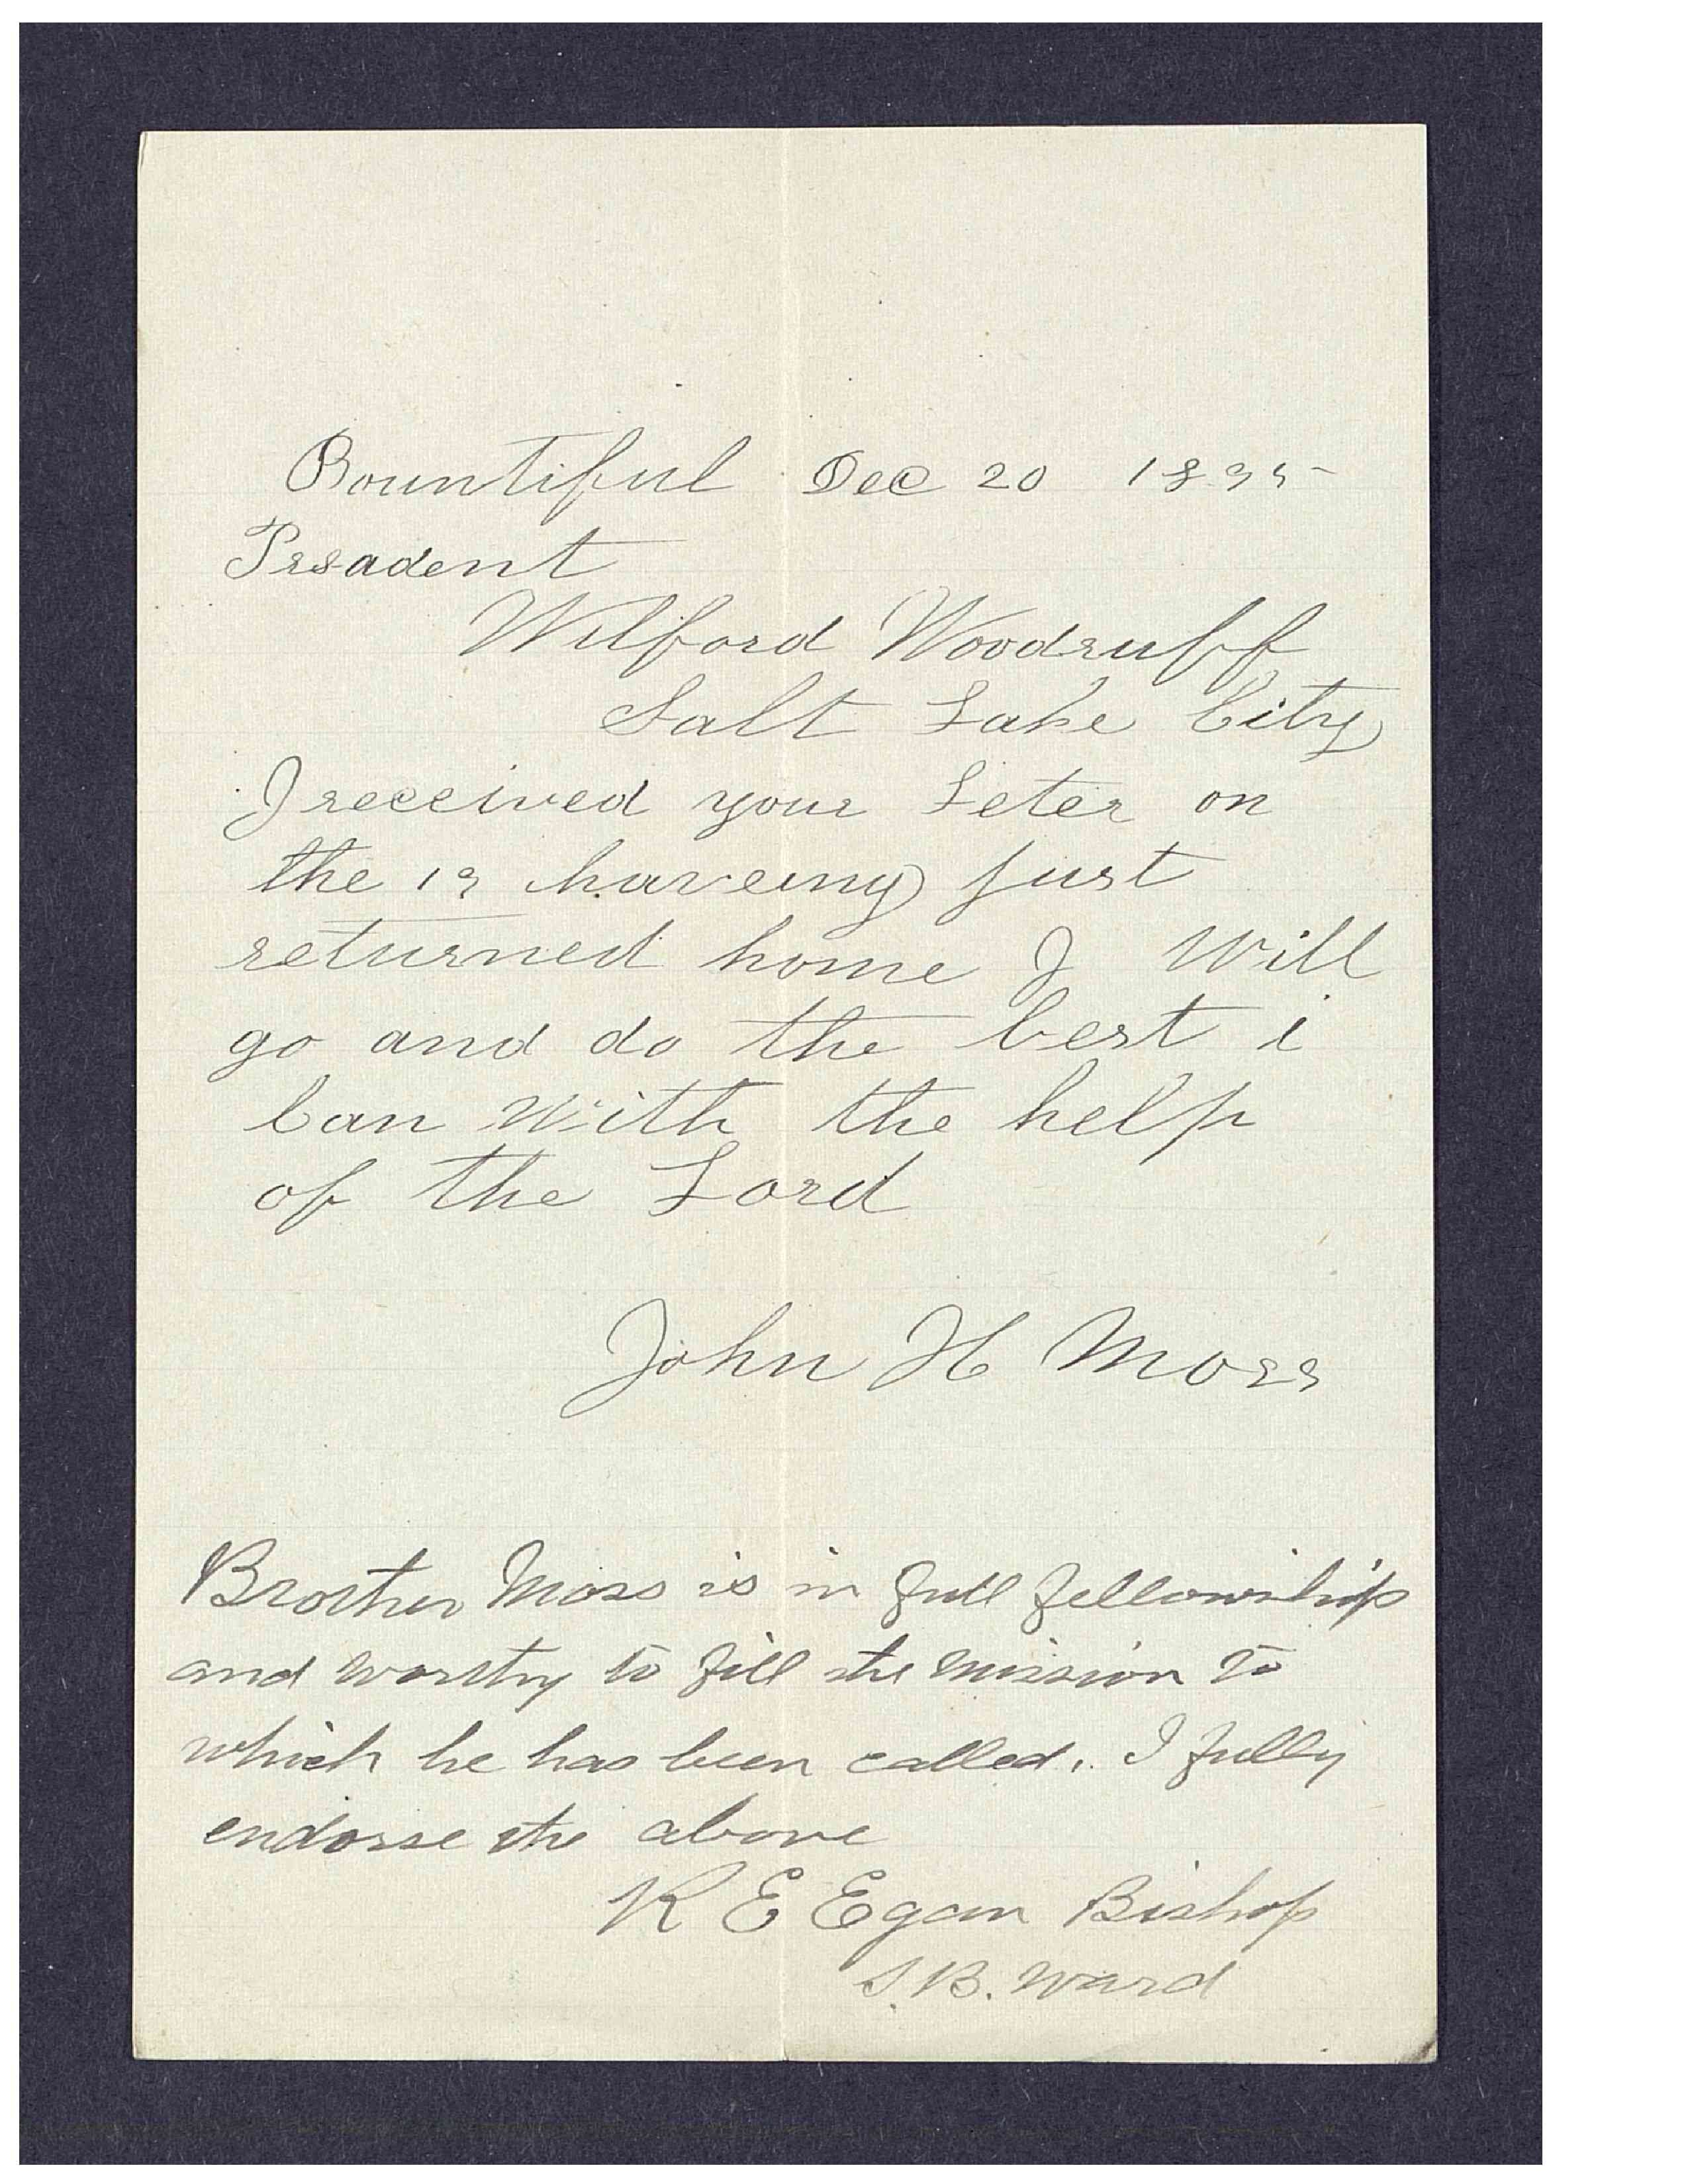 Bountiful Dec 20 1895
Presadent
Wilford Woodruff
Salt Lake City
I received your Leter on
the 19 haveing just
returned home I Will
go and do the best i
Can With the help
of the Lord
John H Moss
Brother Moss is in full fellowship
and worthy to fill the mission to
which he has been called. I fully
endorse the above
R E Egan Bishop
S.B. Ward